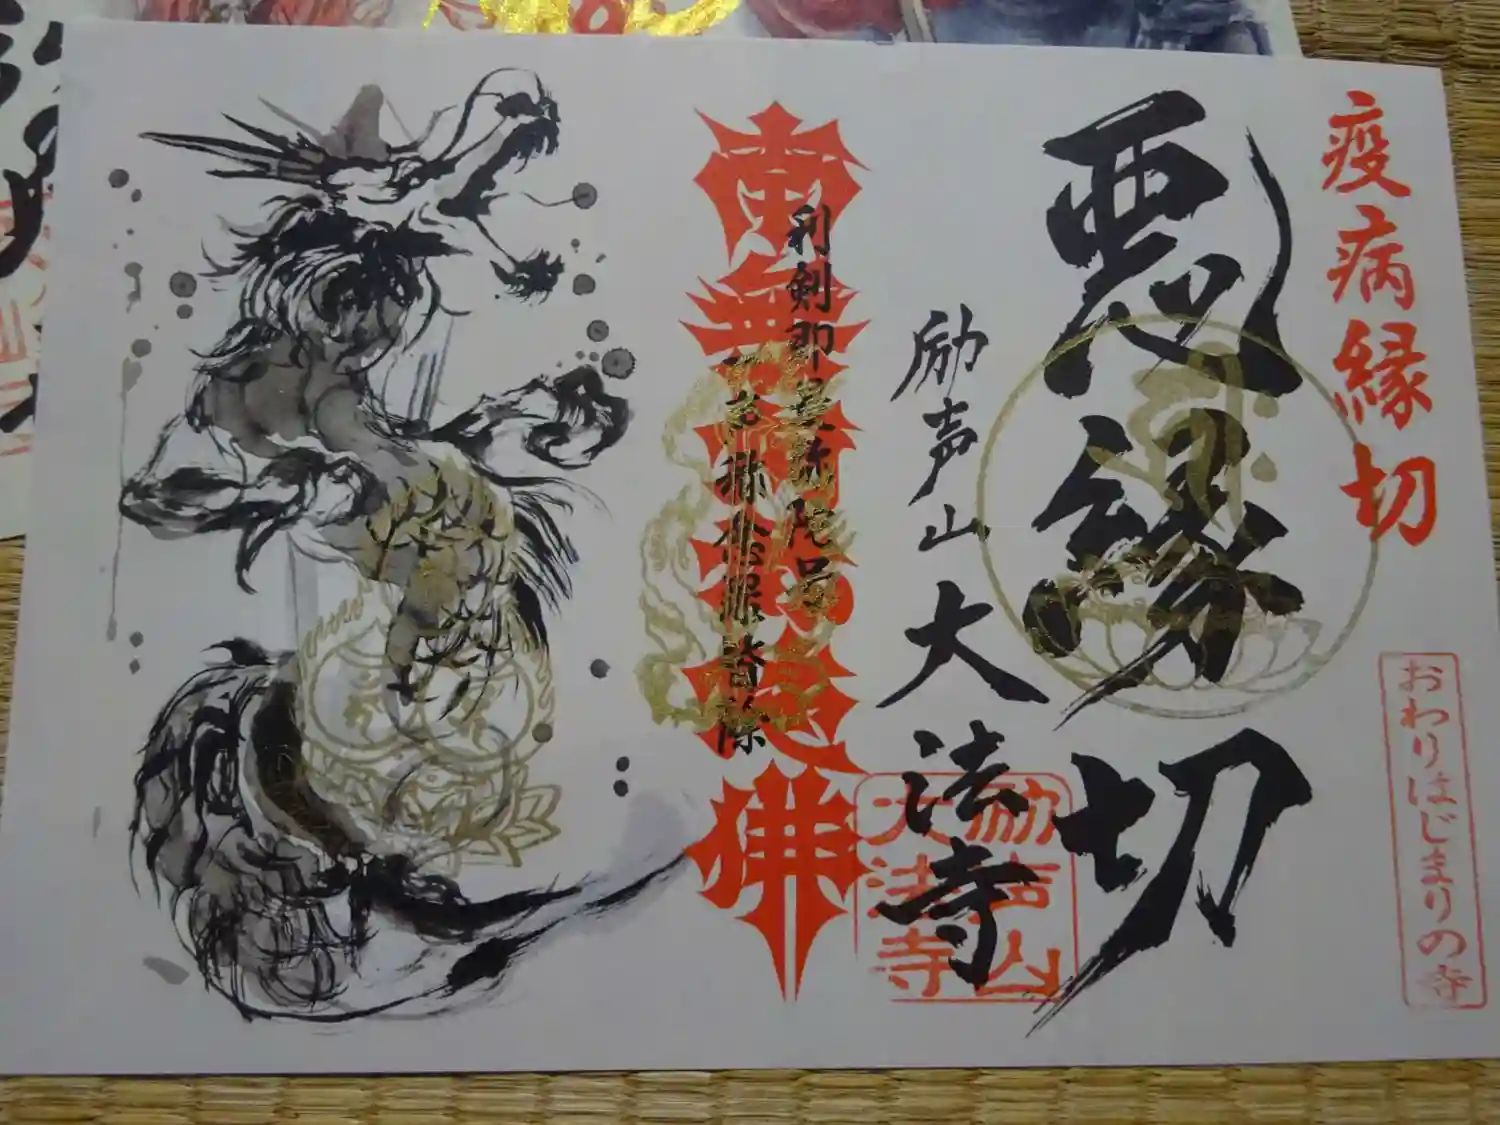 疫病縁切
おわりはじまりの寺
悪縁切
励声山 大法寺
励声山
大法寺
南無阿弥陀佛
利剣即是弥陀号
一声称念罪皆除